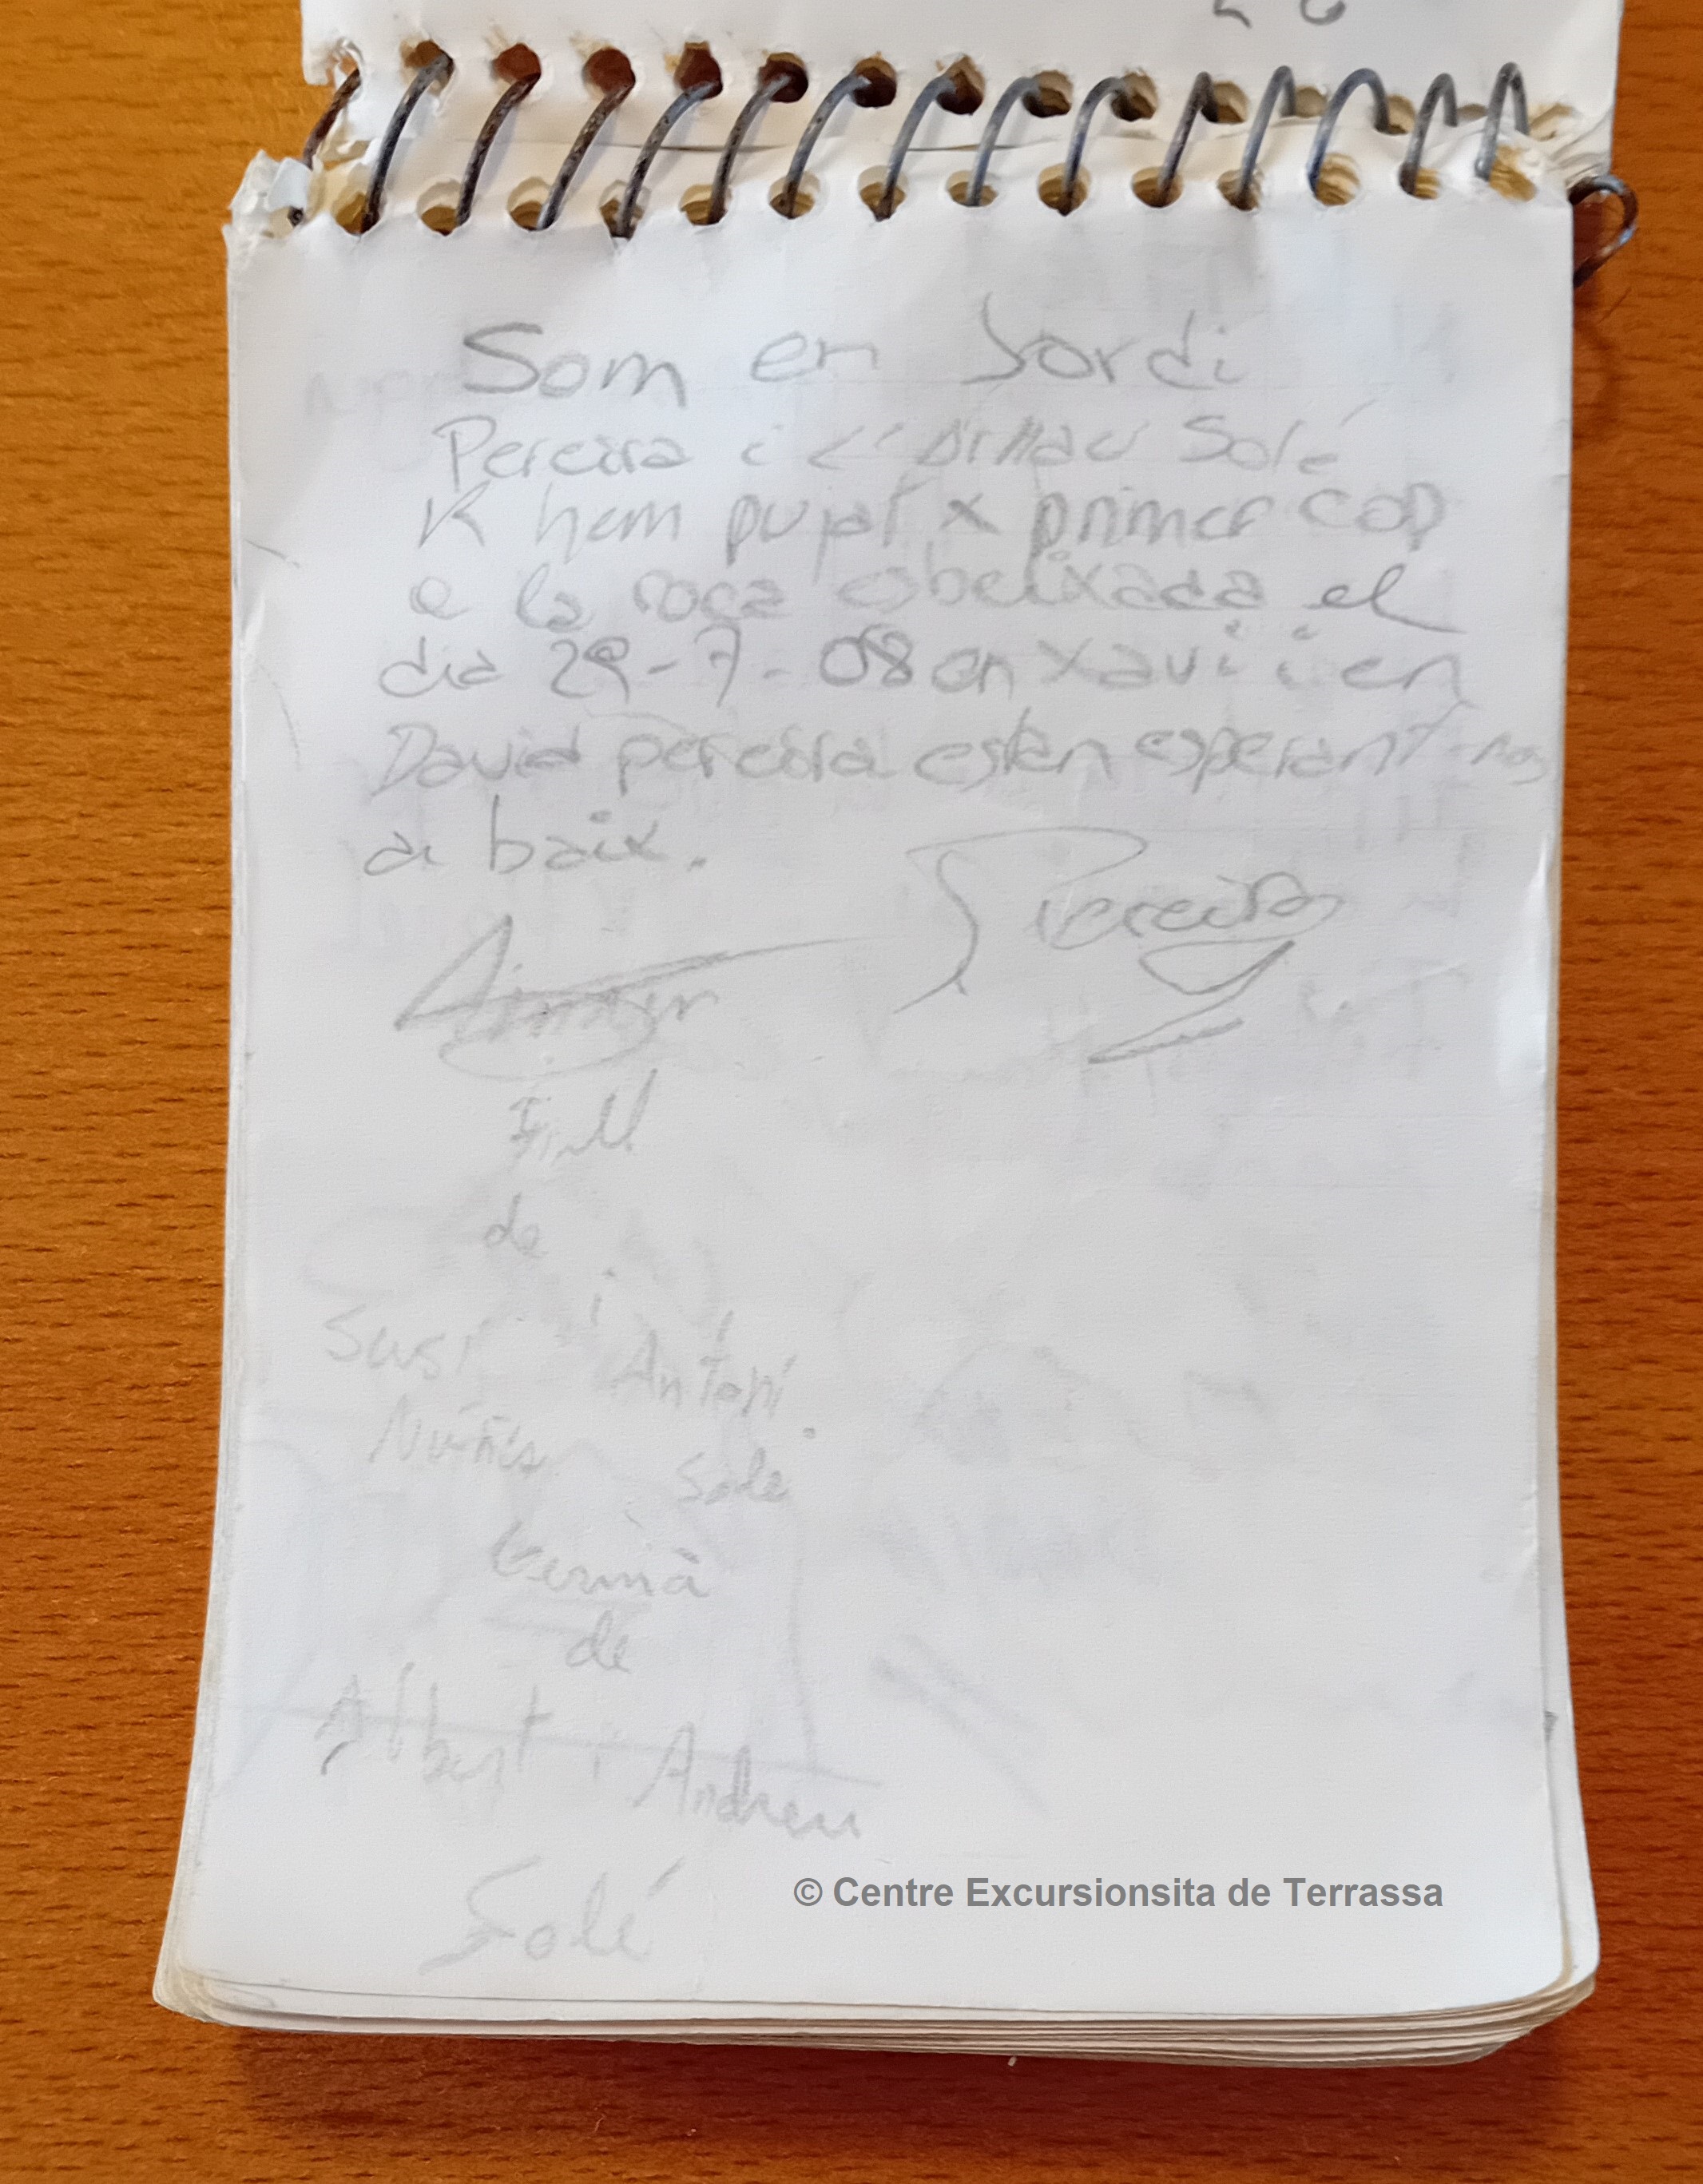 Som en Jordi
Pereira i l'Arnau Solé
K hem pujat x primer cop
a la roca esbelixada el
dia 29-7-08 en Xavi i en
David pereira estan esperant-nos
a baix.
Pereira
Fill
de
Susi i Antoni
Núñez Sole
Germà
de
Albert i Andreu
Solé
© Centre Excursionsita de Terrassa